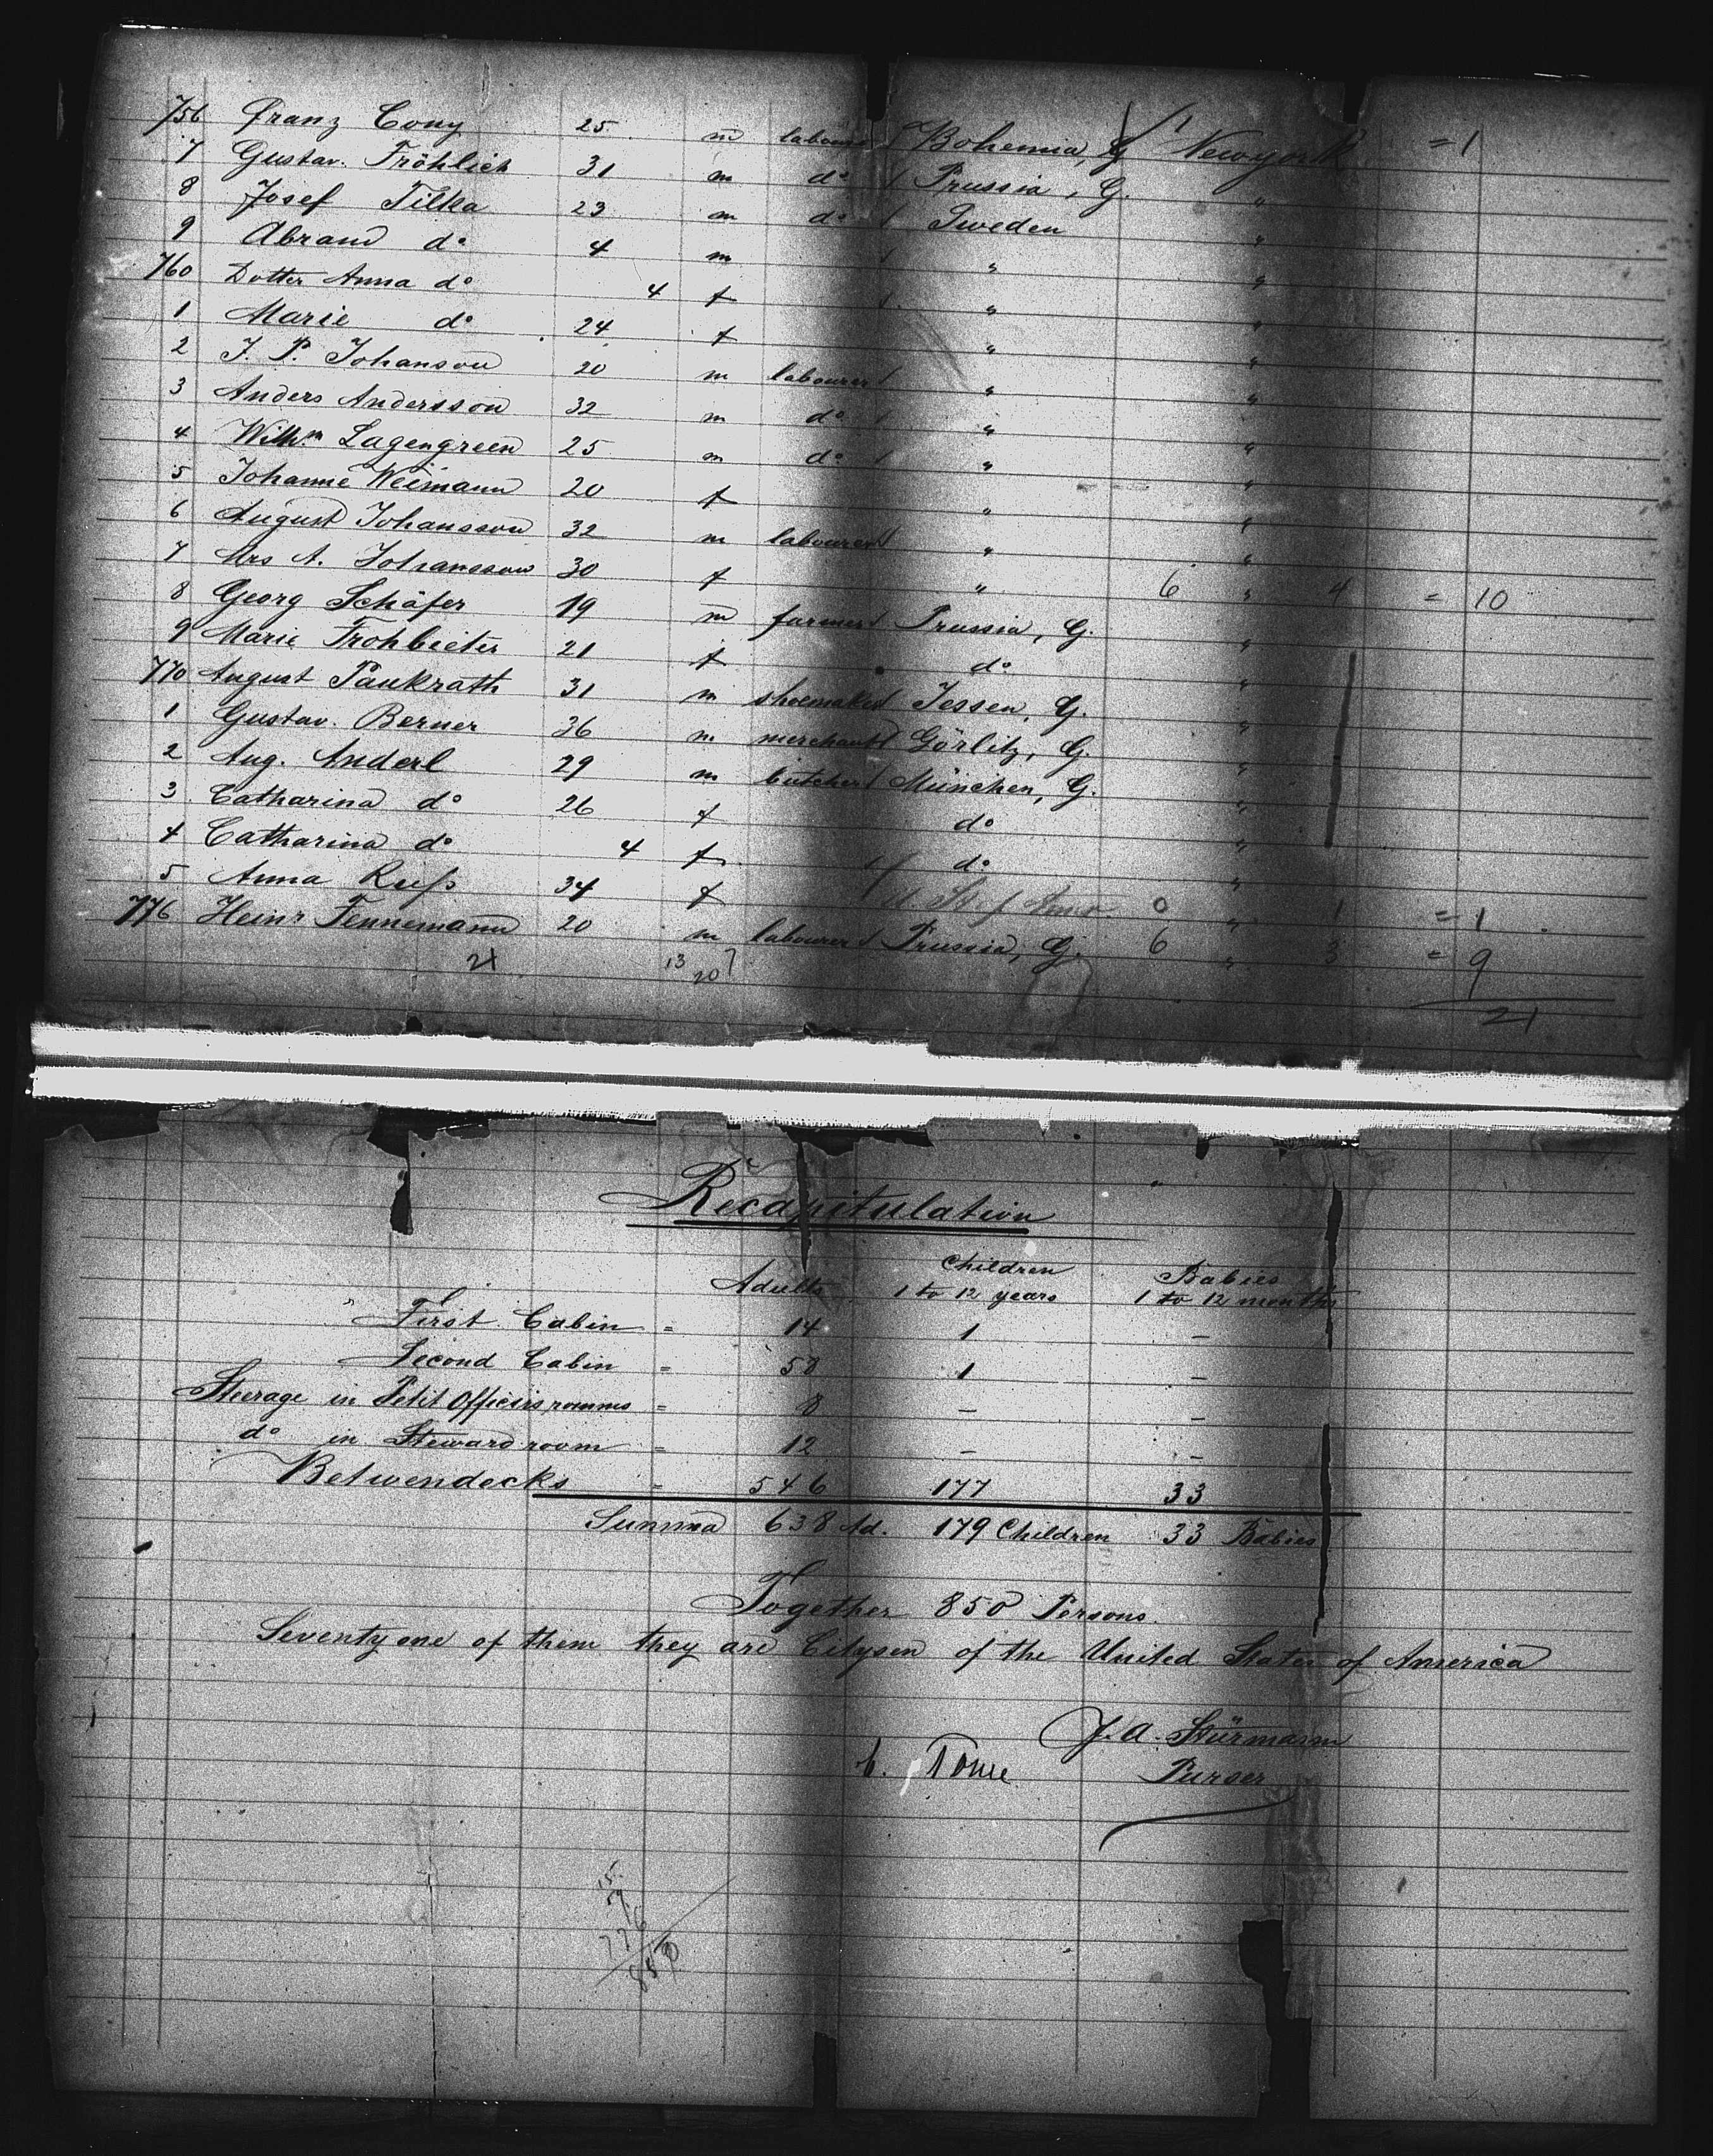 756 Franz Cony 25 m labourer Bohemia, G. Newyork = 1
7 Gustav. Fröhlich 31 m do Prussia, G. "
8 Josef Tilka 23 m do Sweden "
9 Abrand do 4 m " "
760 Dotter Anna do 4 f " "
1 Marie do 24 f " "
2 J. P. Johanson 20 m labourer " "
3 Anders Andersson 32 m do " "
4 Wilhm Lagengreen 25 m do " "
5 Johanne Weimann 20 f " "
6 August Johansson 32 m labourer " "
7 Mrs A. Johansson 30 f " 6 " 4 = 10
8 Georg Schäfer 19 m farmer Prussia, G. "
9 Marie Frohbieter 21 f do "
770 August Paukrath 31 m shoemaker Jessen, G. "
1 Gustav. Berner 36 m merchant Görlitz, G. "
2 Aug. Anderl 29 m butcher München, G. "
3 Catharina do 26 f do "
4 Catharina do 4 f do "
5 Anna Reiß 34 f U. St. of Amer. 0 " 1 = 1
776 Heinr Fennemann 20 m labourer Prussia, G. 6 " 3 = 9
21 13 7 20 21
Recapitulation
Adults Children 1 to 12 years Babies 1 to 12 months
First Cabin = 14 1 –
Second Cabin = 58 1 –
Steerage in Petit Officirs rooms = 8 – –
do in Steward room = 12 – –
Betwendecks = 546 177 33
Summa 638 Ad. 179 Children 33 Babies
Together 850 Persons.
Seventy one of them they are Citysen of the United States of America
J. A. Stürmann
Purser
15
59
776
850